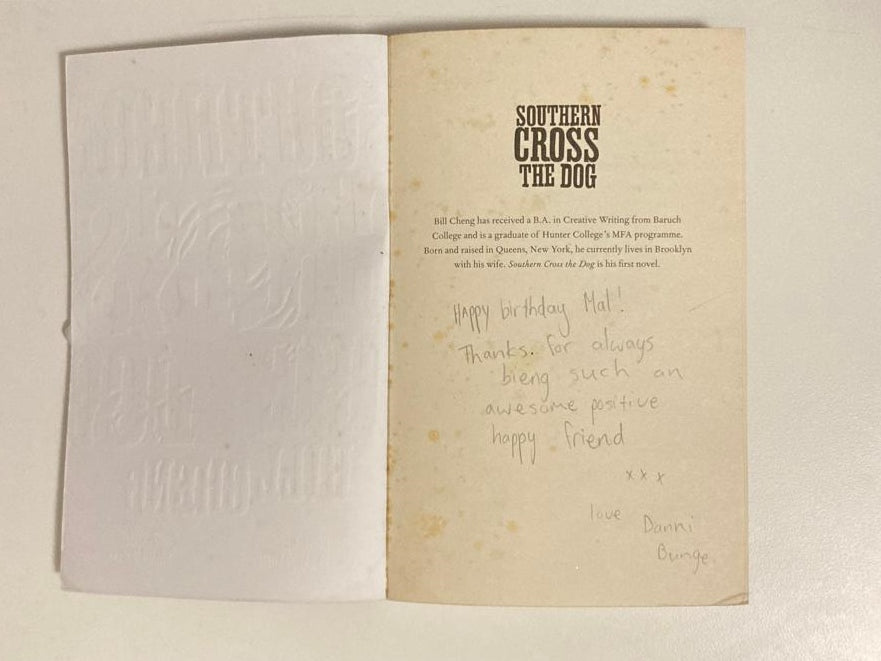 SOUTHERN
CROSS
THE DOG
Bill Cheng has received a B.A. in Creative Writing from Baruch
College and is a graduate of Hunter College's MFA programme.
Born and raised in Queens, New York, he currently lives in Brooklyn
with his wife. Southern Cross the Dog is his first novel.
Happy birthday Mal!
Thanks. for always
bieng such an
awesome positive
happy friend
x x x
love
Danni
Bunge